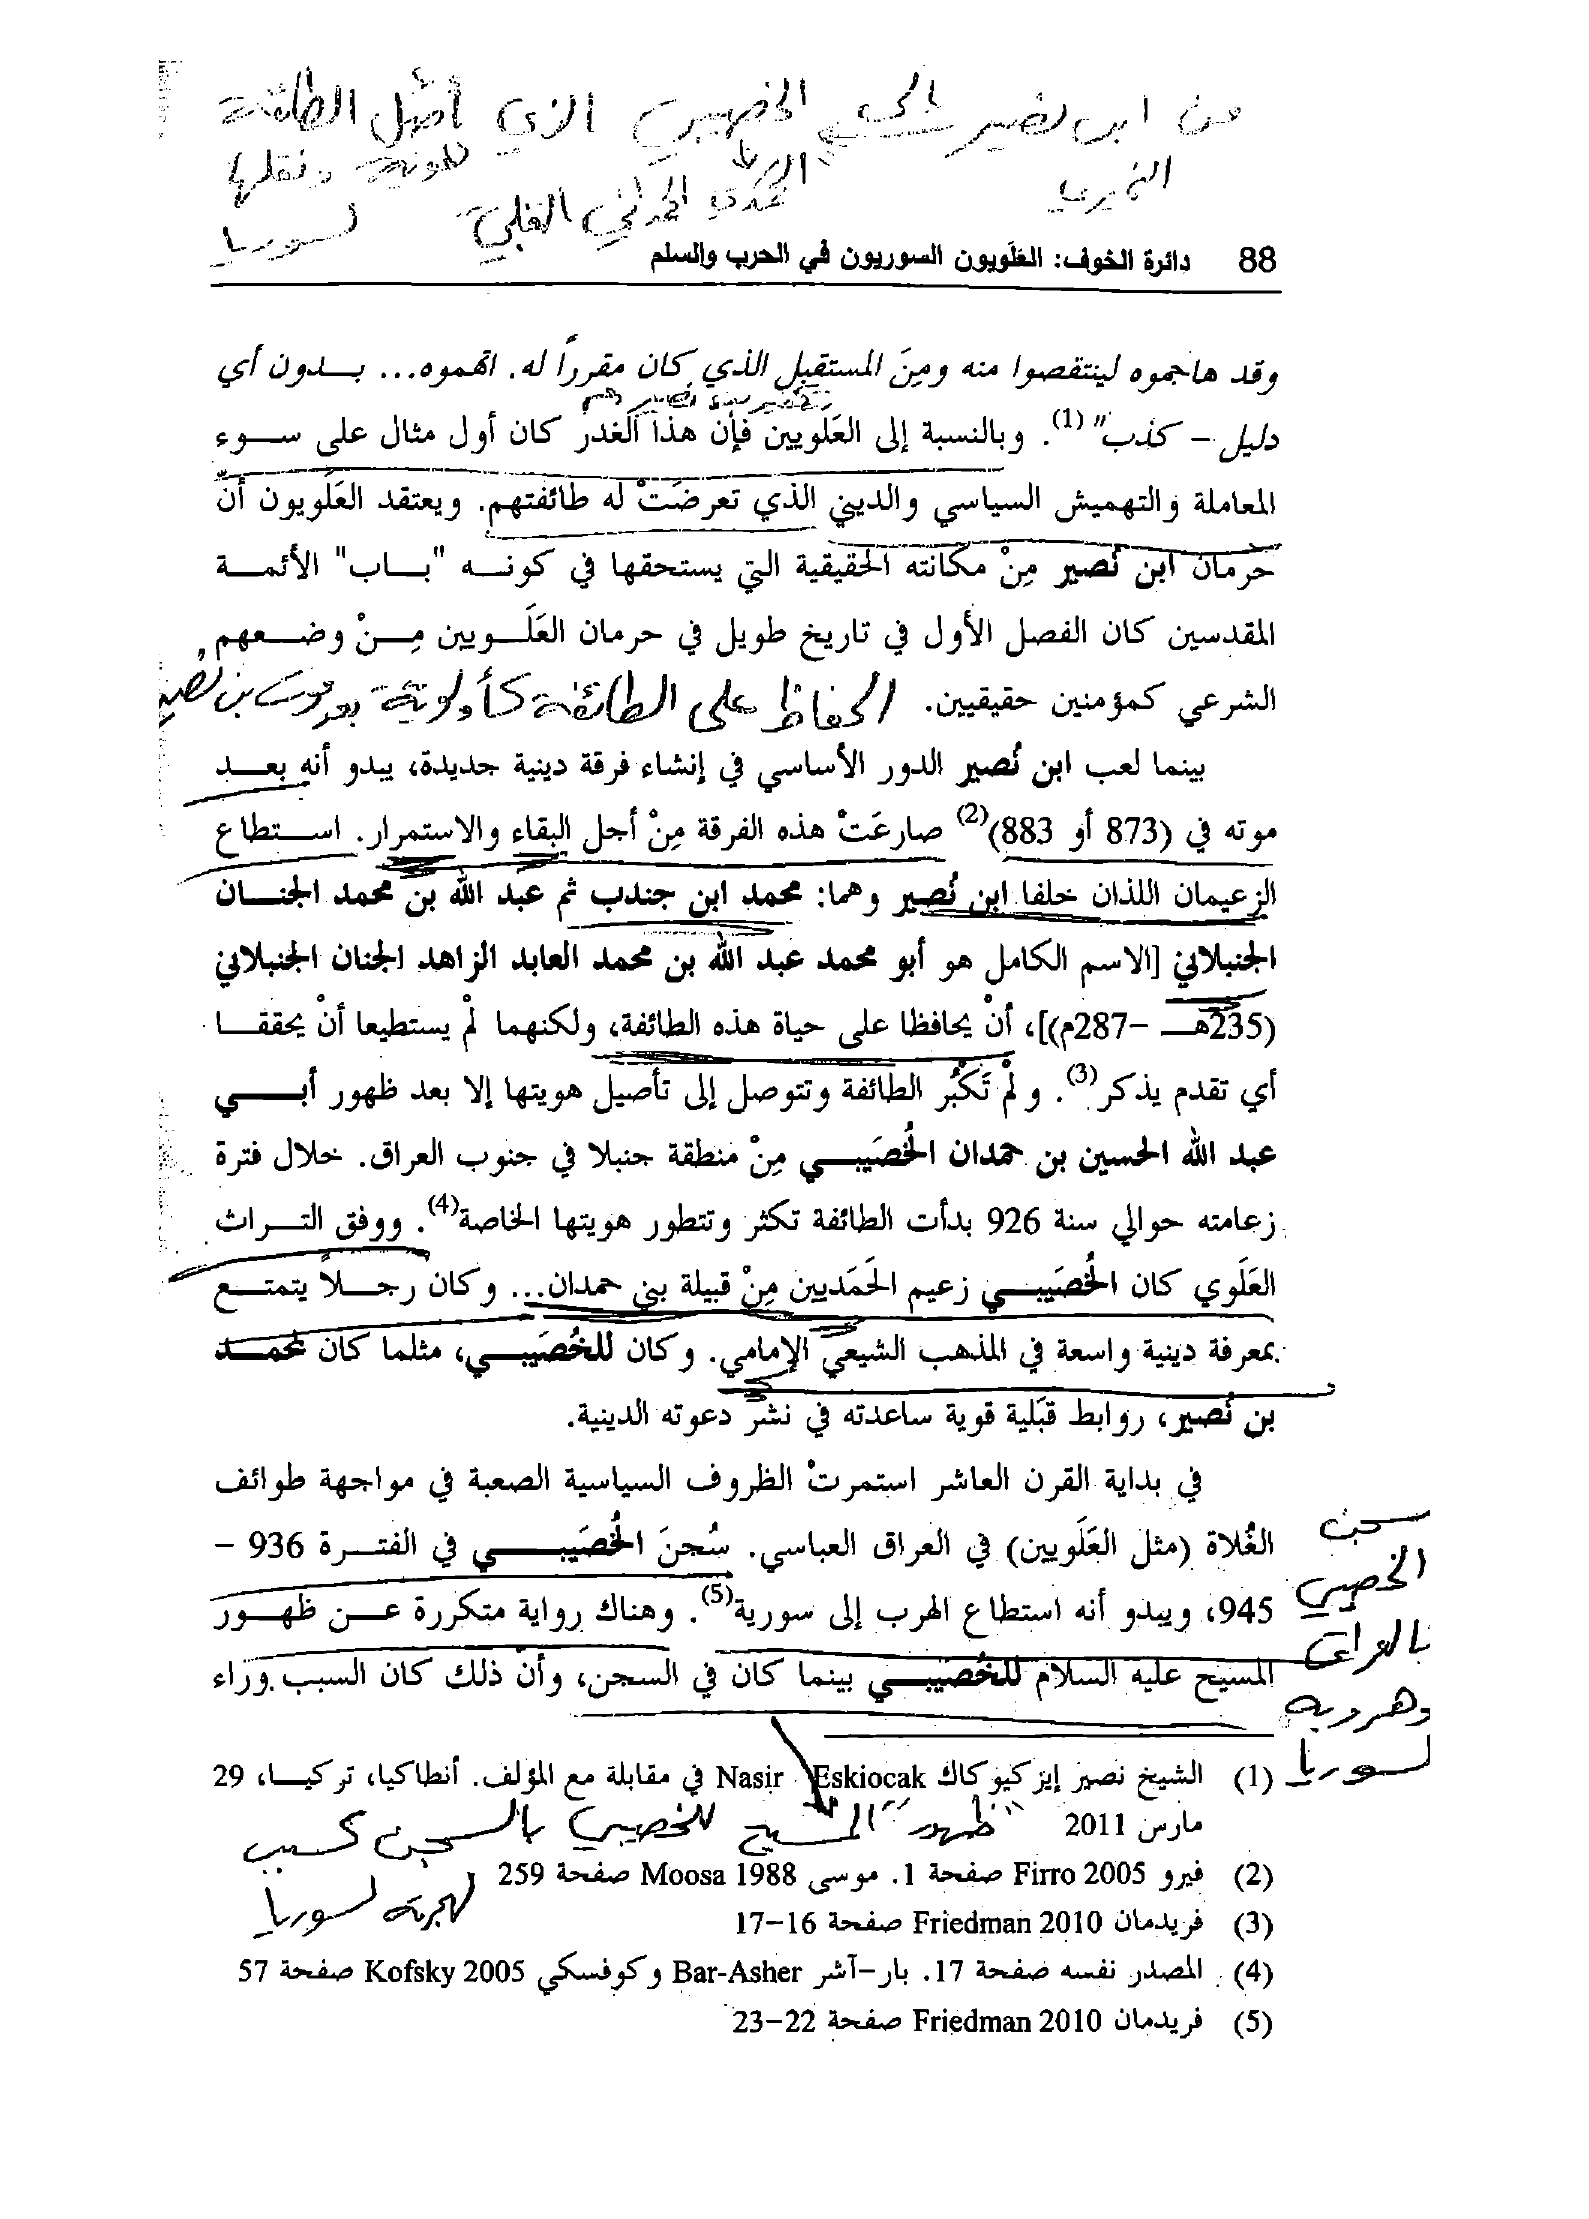 من ابن نصير إلى الخصيبي الذي أصّل الطائفة
النميري للهوية ونقلها
الحمداني القبلي لسوريا
88 دائرة الخوف: العَلَويون السوريون في الحرب والسلم
وقد هاجموه لينتقصوا منه ومِنَ المستقبل الذي كان مقرراً له. اتهموه... بـدون أي
دليل - كذب" (1). وبالنسبة إلى العَلويين فإن هذا الغدر كان أول مثال على سـوء
المعاملة والتهميش السياسي والديني الذي تعرضَتْ له طائفتهم. ويعتقد العَلَويون أنّ
حرمان ابن نُصير مِنْ مكانته الحقيقية التي يستحقها في كونـه "بـاب" الأئمـة
المقدسين كان الفصل الأول في تاريخ طويل في حرمان العَلَـويين مِـنْ وضـعهم
الشرعي كمؤمنين حقيقيين. الحفاظ على الطائفة كأولوية بعد موت بن نصير
بينما لعب ابن نُصير الدور الأساسي في إنشاء فرقة دينية جديدة، يبدو أنه بعـد
موته في (873 أو 883)(2) صارعَتْ هذه الفرقة مِنْ أجل البقاء والاستمرار. اسـتطاع
الزعيمان اللذان خلفا ابن نُصير وهما: محمد ابن جندب ثم عبد الله بن محمد الجنـان
الجنبلاني [الاسم الكامل هو أبو محمد عبد الله بن محمد العابد الزاهد الجنان الجنبلاني
(235هـ -287م)]، أنْ يحافظا على حياة هذه الطائفة، ولكنهما لمْ يستطيعا أنْ يحققـا
أي تقدم يذكر(3). ولمْ تَكْبُر الطائفة وتتوصل إلى تأصيل هويتها إلا بعد ظهور أبـي
عبد الله الحسين بن حمدان الخُصَيبـي مِنْ منطقة جنبلا في جنوب العراق. خلال فترة
زعامته حوالي سنة 926 بدأت الطائفة تكثر وتتطور هويتها الخاصة(4). ووفق التـراث
العَلَوي كان الخُصَيبـي زعيم الحَمَديين مِنْ قبيلة بني حمدان... وكان رجـلاً يتمتـع
بمعرفة دينية واسعة في المذهب الشيعي الإمامي. وكان للخُصَيبـي، مثلما كان محمـد
بن نُصير، روابط قبَلية قوية ساعدته في نشر دعوته الدينية.
في بداية القرن العاشر استمرتْ الظروف السياسية الصعبة في مواجهة طوائف
الغُلاة (مثل العَلَويين) في العراق العباسي. سُجنَ الخُصَيبـي في الفتـرة 936 -
945، ويبدو أنه استطاع الهرب إلى سورية(5). وهناك رواية متكررة عـن ظهـور
المسيح عليه السلام للخُصَيبـي بينما كان في السجن، وأنّ ذلك كان السبب وراء
سجن
الخصيبي
بالعراق
وهروبه
لسوريا
(1) الشيخ نصير إيزكيوكاك Nasir Eskiocak في مقابلة مع المؤلف. أنطاكيا، تركيـا، 29
مارس 2011
"ظهور" المسيح للخصيبي بالسجن كسبب
لهجرته لسوريا
(2) فيرو Firro 2005 صفحة 1. موسى Moosa 1988 صفحة 259
(3) فريدمان Friedman 2010 صفحة 16-17
(4) المصدر نفسه صفحة 17. بار-آشر Bar-Asher وكوفسكي Kofsky 2005 صفحة 57
(5) فريدمان Friedman 2010 صفحة 22-23